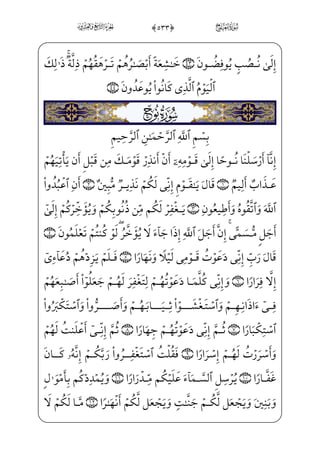 إِلَىٰ نُصُبٍ يُوفِضُونَ ۝ خَٰشِعَةً أَبْصَٰرُهُمْ تَرْهَقُهُمْ ذِلَّةٌ ۚ ذَٰلِكَ
ٱلْيَوْمُ ٱلَّذِى كَانُوا۟ يُوعَدُونَ ۝
بِسْمِ ٱللَّهِ ٱلرَّحْمَٰنِ ٱلرَّحِيمِ
إِنَّآ أَرْسَلْنَا نُوحًا إِلَىٰ قَوْمِهِۦٓ أَنْ أَنذِرْ قَوْمَكَ مِن قَبْلِ أَن يَأْتِيَهُمْ
عَذَابٌ أَلِيمٌ ۝ قَالَ يَٰقَوْمِ إِنِّى لَكُمْ نَذِيرٌ مُّبِينٌ ۝ أَنِ ٱعْبُدُوا۟
ٱللَّهَ وَٱتَّقُوهُ وَأَطِيعُونِ ۝ يَغْفِرْ لَكُم مِّن ذُنُوبِكُمْ وَيُؤَخِّرْكُمْ إِلَىٰٓ
أَجَلٍ مُّسَمًّى ۚ إِنَّ أَجَلَ ٱللَّهِ إِذَا جَآءَ لَا يُؤَخَّرُ ۖ لَوْ كُنتُمْ تَعْلَمُونَ ۝
قَالَ رَبِّ إِنِّى دَعَوْتُ قَوْمِى لَيْلًا وَنَهَارًا ۝ فَلَمْ يَزِدْهُمْ دُعَآءِىٓ
إِلَّا فِرَارًا ۝ وَإِنِّى كُلَّمَا دَعَوْتُهُمْ لِتَغْفِرَ لَهُمْ جَعَلُوٓا۟ أَصَٰبِعَهُمْ
فِىٓ ءَاذَانِهِمْ وَٱسْتَغْشَوْا۟ ثِيَابَهُمْ وَأَصَرُّوا۟ وَٱسْتَكْبَرُوا۟
ٱسْتِكْبَارًا ۝ ثُمَّ إِنِّى دَعَوْتُهُمْ جِهَارًا ۝ ثُمَّ إِنِّىٓ أَعْلَنتُ لَهُمْ
وَأَسْرَرْتُ لَهُمْ إِسْرَارًا ۝ فَقُلْتُ ٱسْتَغْفِرُوا۟ رَبَّكُمْ إِنَّهُۥ كَانَ
غَفَّارًا ۝ يُرْسِلِ ٱلسَّمَآءَ عَلَيْكُم مِّدْرَارًا ۝ وَيُمْدِدْكُم بِأَمْوَٰلٍ
وَبَنِينَ وَيَجْعَل لَّكُمْ جَنَّٰتٍ وَيَجْعَل لَّكُمْ أَنْهَٰرًا ۝ مَّا لَكُمْ لَا